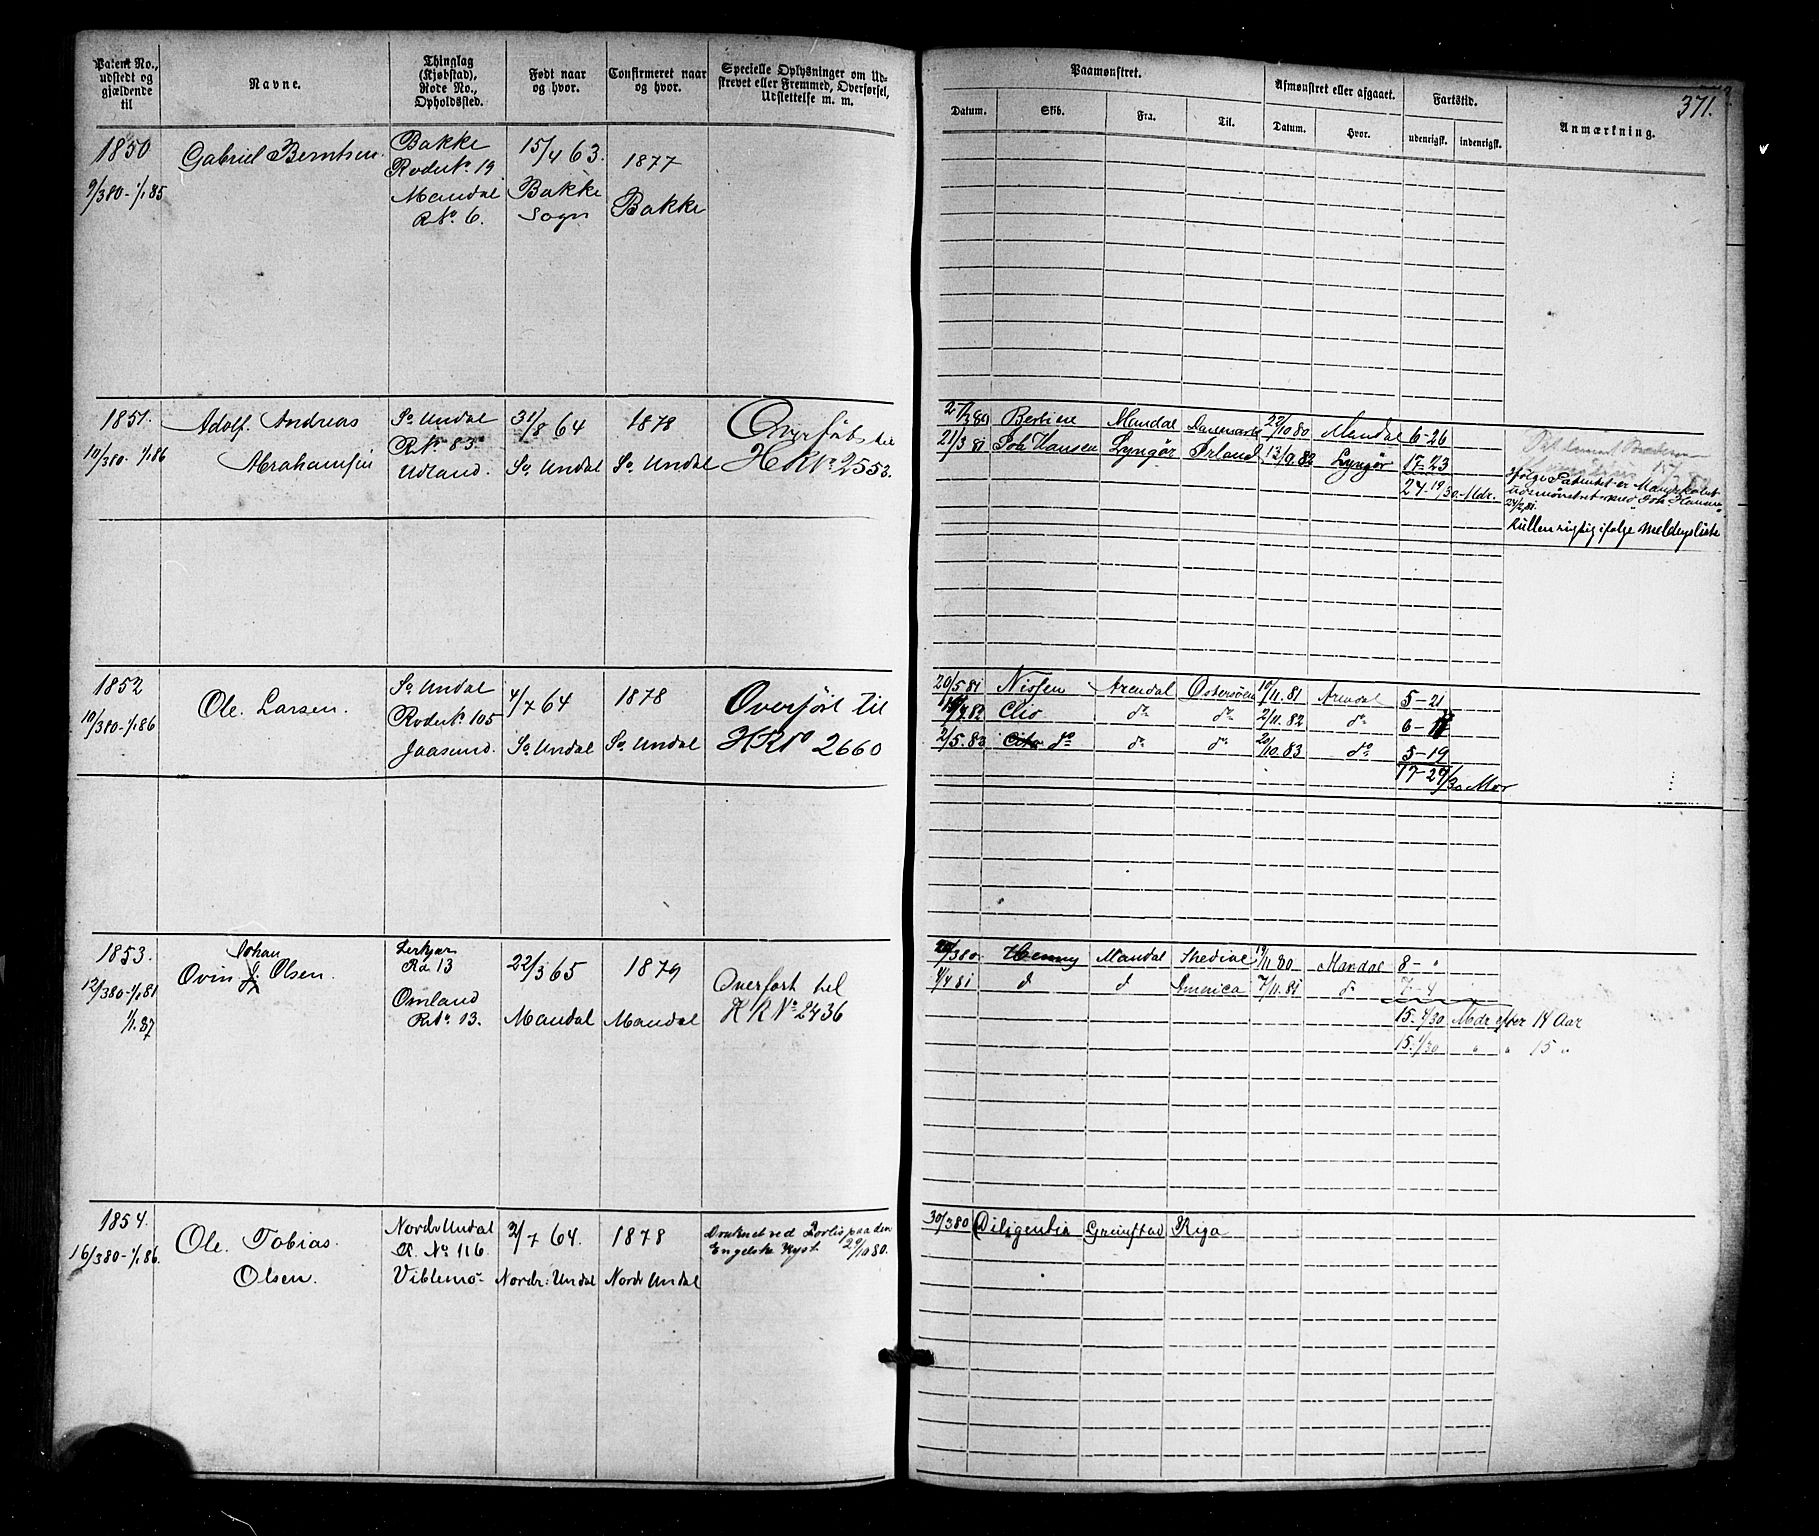 371.
Patent No., udstedt og gjældende til
Navne.
Thinglag (Kjøbstad), Rode No., Opholdssted.
Født naar og hvor.
Confirmeret naar og hvor.
Specielle Oplysninger om Udskrevet eller Fremmed, Overførsel, Udslettelse m. m.
Paamønstret.
Afmønstret eller afgaaet.
Fartstid.
Anmærkning.
Datum.
Skib.
Fra.
Til.
Datum.
Hvor.
udenrigsk.
indenrigsk.
1850
9/3 80 - 1/1 85
Gabriel Berntsen
Bakke
Rode No 19
Mandal
R No 6.
15/4 63.
Bakke
Sogn
1877
Bakke
1851.
10/3 80 - 1/1 86
Adolf Andreas
Abrahamsen
So Undal
R No 83
Udland.
31/8 64
So Undal
1878
So Undal
Overført til
H R No 2553.
Berline Mandal 22/10 80 Mandal 6-26
21/3 81 Joh Hansen Lyngør Irland 13/9 82 Lyngør 17-23
24-19/30 Mdr.
Ifølge Patentet er Mandskabet
udmønstret med Joh Hansen
24/2 81.
Rullen rigtig ifølge Meldingsliste
1852
10/3 80 - 1/1 86
Ole Larsen.
So Undal
Rode No 105
Jaasund.
4/7 64
So Undal
1878
So Undal
Overført til
H R No 2660
20/5 81 Nissen Arendal Østersøen 15/11 81 Arendal 5-21
Clio do do 2/11 82 do
2/5. 83 do do do 20/10. 83 do 5-19
17-27/30 Mdr
1853.
12/3 80 - 1/1 81
1/1. 87
Johan
Ovin J. Olsen.
Rd 13
Omland
R No 13.
22/3 65
Mandal
1879
Mandal
Overført til
H R No 2436
Henny Mandal Shediac 19/11 80 Mandal 8- "
4/4 81 d d America 7/11. 81 do 7-4
15. 4/30 Mdr efter 14 Aar
15. 1/30 " " 15 "
1854.
16/3 80 - 1/1 86.
Ole Tobias
Olsen.
Nordr Undal
R. No 116.
Viblemo
2/7 64.
Nordr: Undal
1878
Nordr Undal
Druknet ved Forlis paa den
Engelske Kyst. 29/10 80.
30/3 80 Diligentia Grimstad Riga